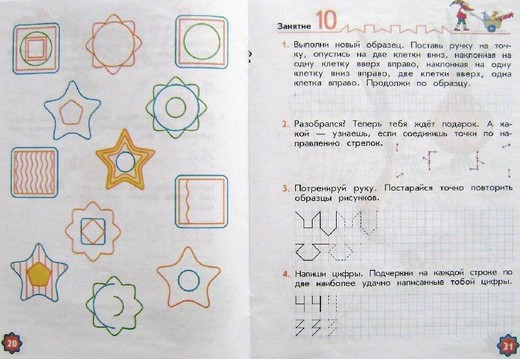 Занятие 10
1. Выполни новый образец. Поставь ручку на точ-
ку, опустись на две клетки вниз, наклонная на
одну клетку вверх вправо, наклонная на одну
клетку вниз вправо, две клетки вверх, одна
клетка вправо. Продолжи по образцу.
2. Разобрался? Теперь тебя ждёт подарок. А ка-
кой — узнаешь, если соединишь точки по на-
правлению стрелок.
3. Потренируй руку. Постарайся точно повторить
образцы рисунков.
4. Напиши цифры. Подчеркни на каждой строке по
две наиболее удачно написанные тобой цифры.
44
33
20
21